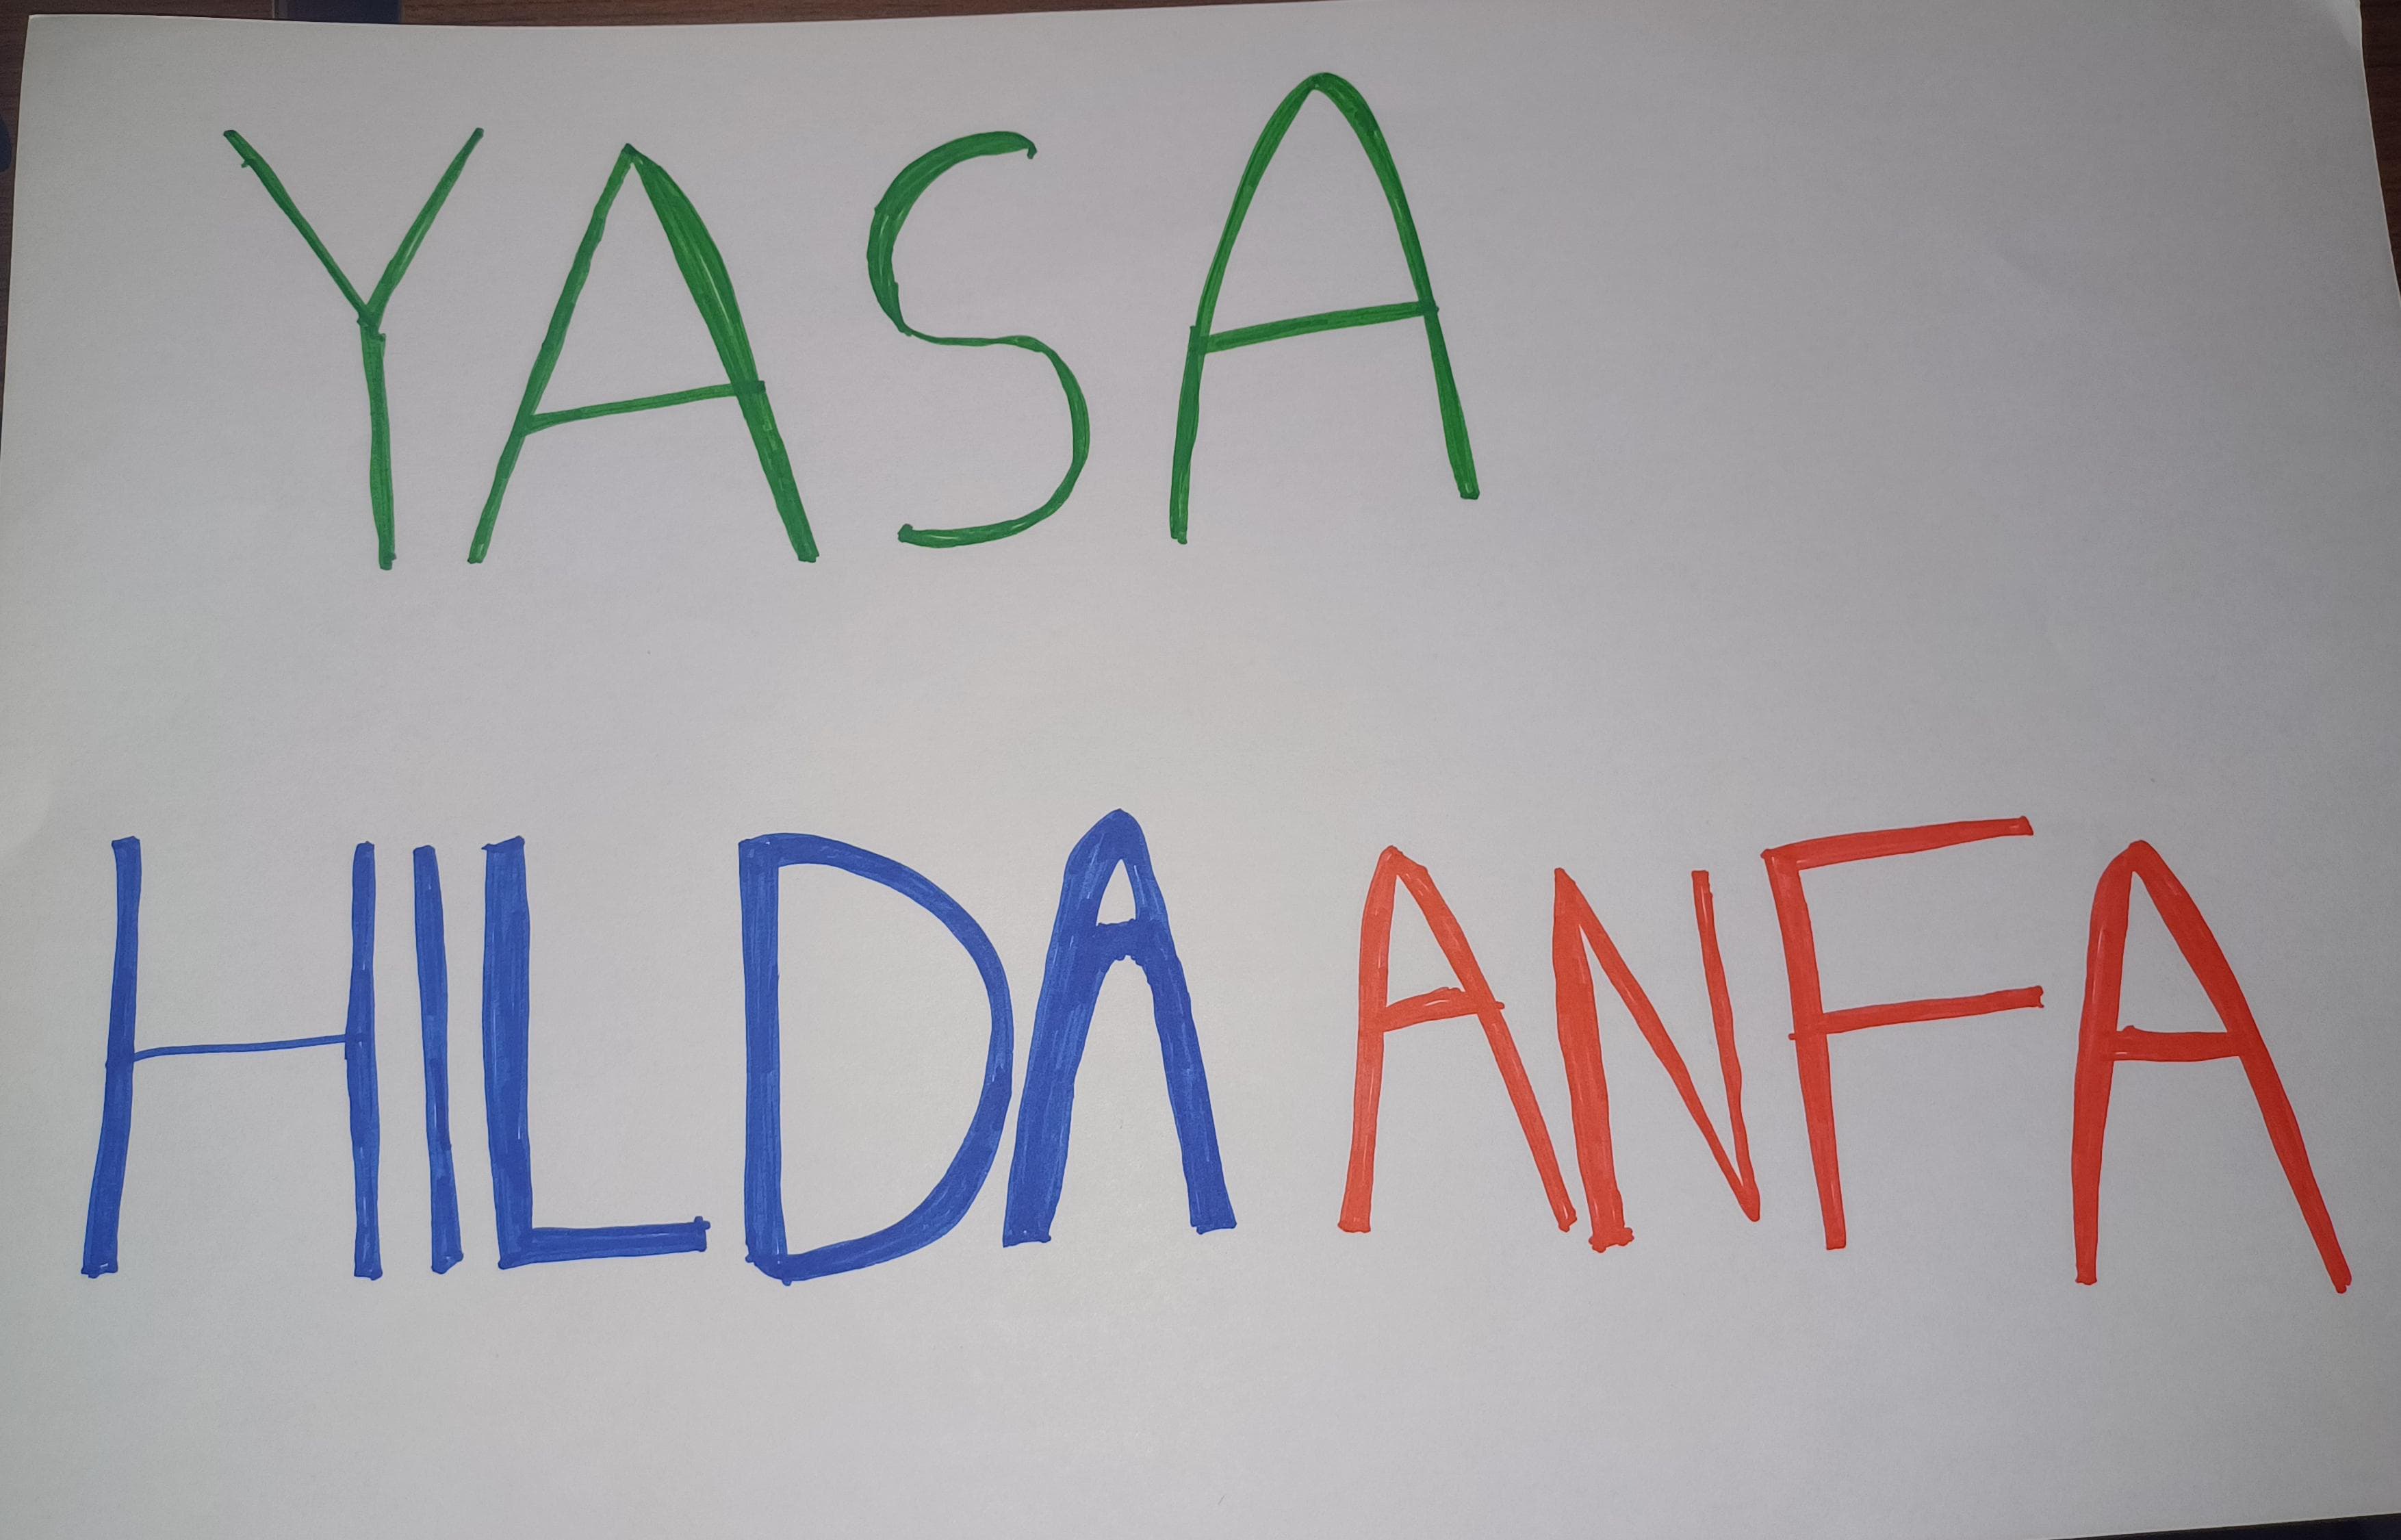 YASA
HILDA ANFA